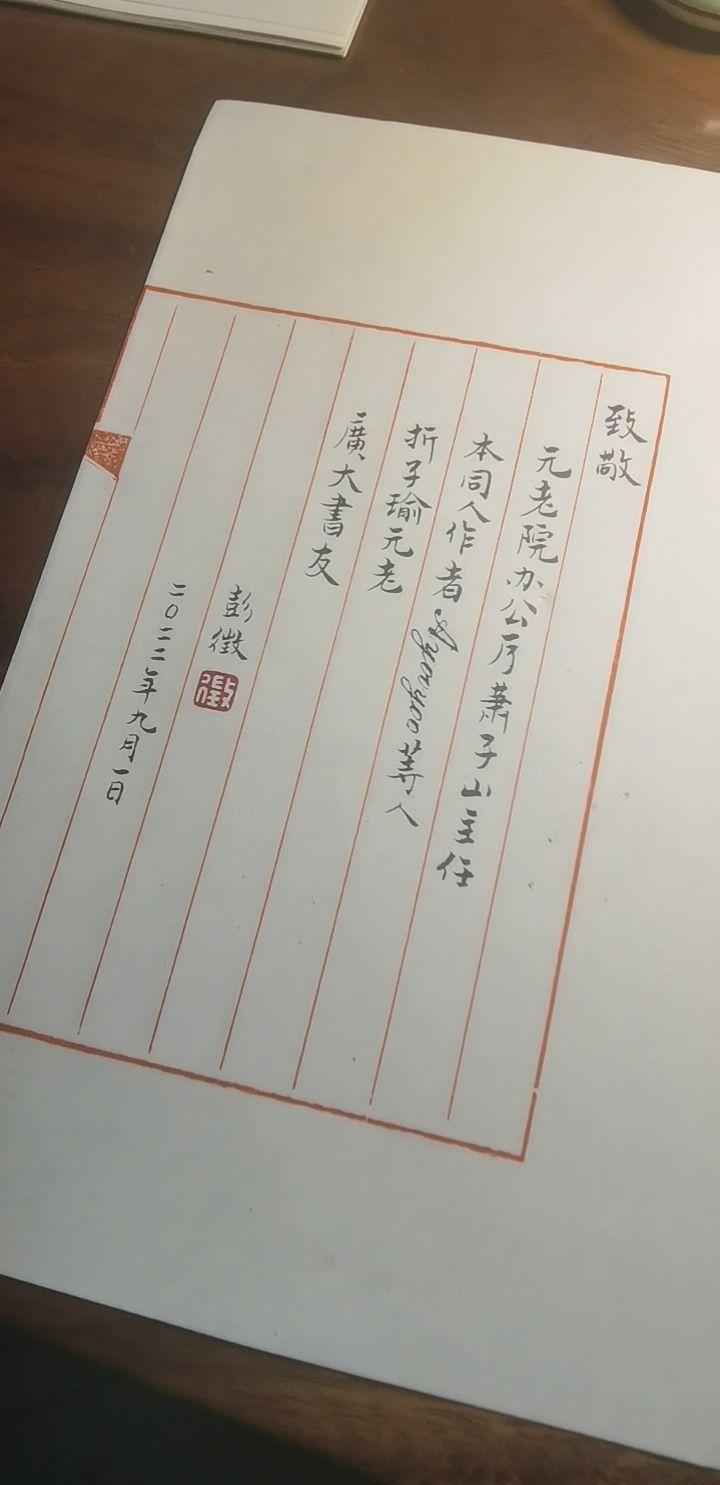 致敬
元老院办公厅蕭子山主任
本同人作者
等人
折子瑜元老
廣大書友
彭徵
徵
二〇二二年九月一日